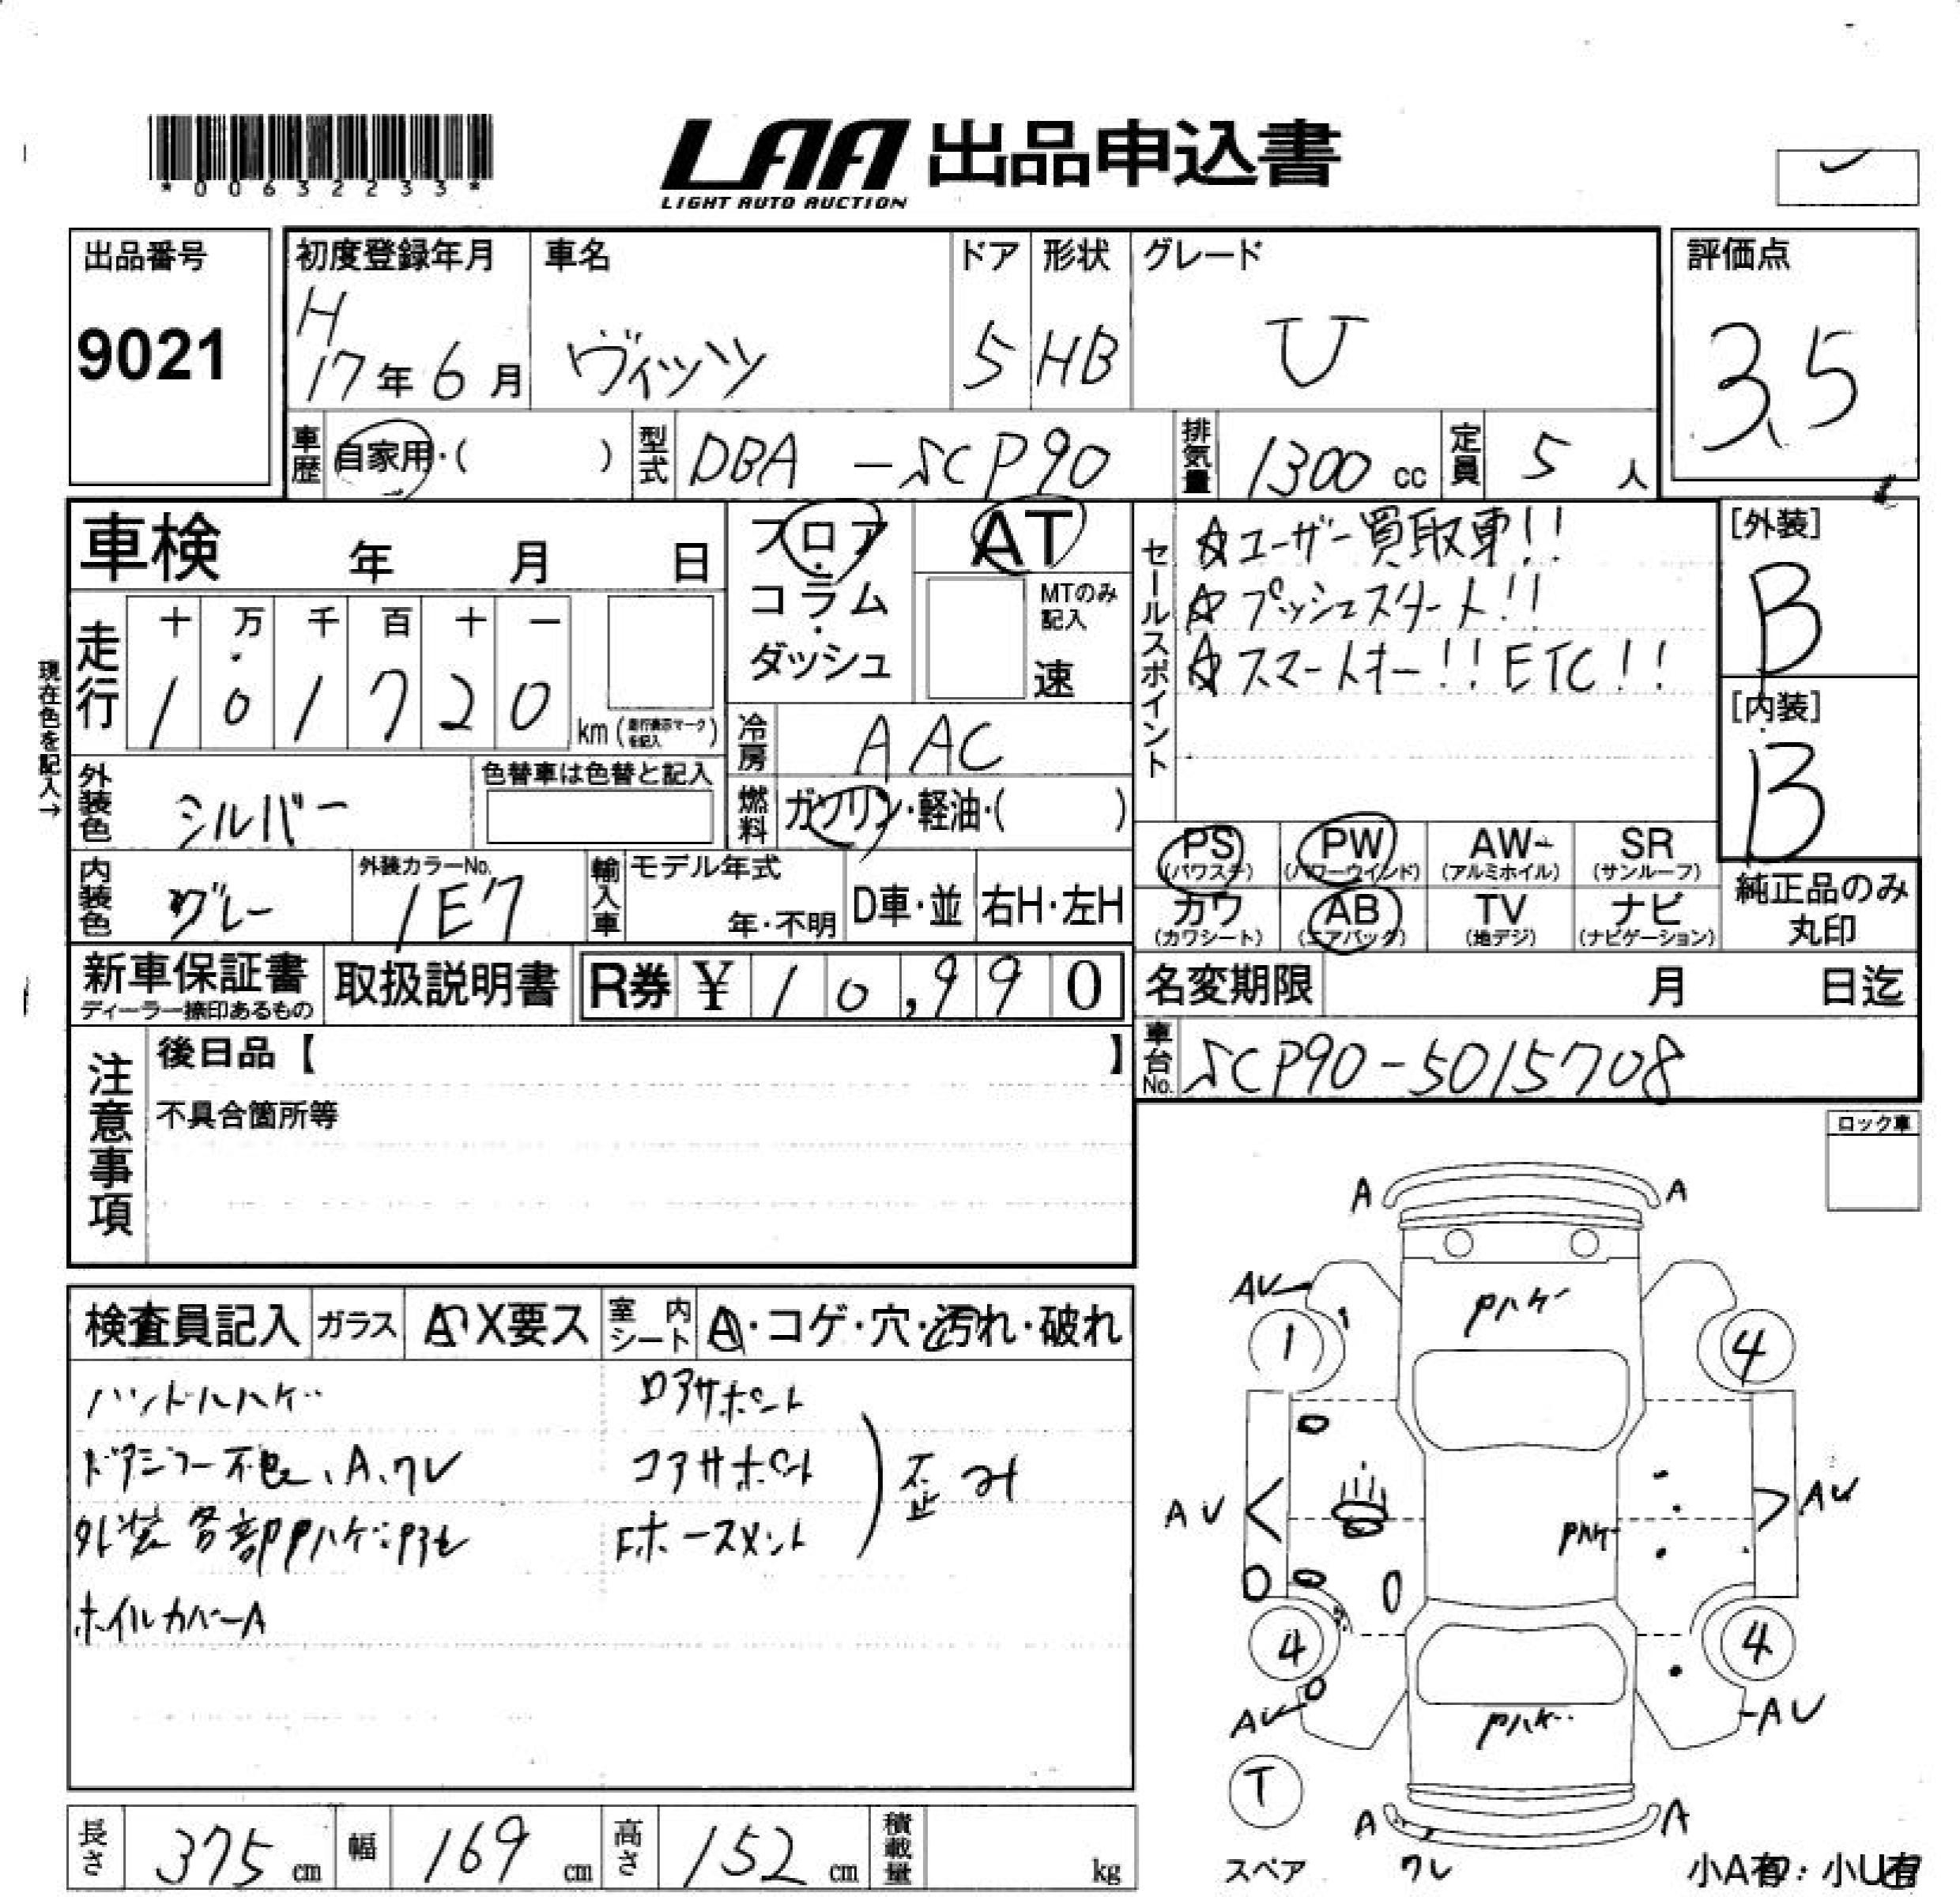 *00632233*
LAA 出品申込書
LIGHT AUTO AUCTION
出品番号
9021
初度登録年月
H
17年6月
車名
ヴィッツ
ドア
5
形状
HB
グレード
U
評価点
3.5
車歴
自家用・( )
型式
DBA-SCP90
排気量
1300 cc
定員
5 人
車検 年 月 日
フロア・コラム・ダッシュ
AT
MTのみ記入
速
現在色を記入→
走行
十 万 千 百 十 一
1 0 1 7 2 0 km (走行表示マークを記入)
冷房
AAC
外装色
シルバー
色替車は色替と記入
燃料
ガソリン・軽油・( )
内装色
グレー
外装カラーNo.
1E7
輸入車
モデル年式
年・不明
D車・並
右H・左H
セールスポイント
☆ユーザー買取車!!
☆プッシュスタート!!
☆スマートキー!! ETC!!
[外装]
B
[内装]
B
PS (パワステ)
PW (パワーウインド)
AW (アルミホイル)
SR (サンルーフ)
カワ (カワシート)
AB (エアバック)
TV (地デジ)
ナビ (ナビゲーション)
純正品のみ
丸印
新車保証書
ディーラー捺印あるもの
取扱説明書
R券 ¥ 10,990
名変期限 月 日迄
車台No.
SCP90-5015708
注意事項
後日品【 】
不具合箇所等
ロック車
検査員記入
ガラス
A・X要ス
室内シート
A・コゲ・穴・汚れ・破れ
ハンドルハゲ
ドアミラー不良、A、ワレ
外装各部Pハゲ
ホイルカバーA
ロアサポート
コアサポート
Fホースメント
歪み
A A
AU
Pハゲ
1 4
AU AU
Pハゲ
4 4
AU AU
Pハゲ
T
A A
スペア
ワレ
小A有:小U有
長さ 375 cm
幅 169 cm
高さ 152 cm
積載量 kg